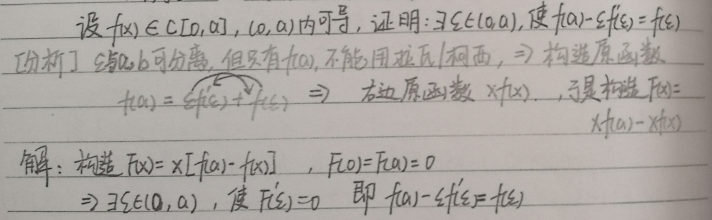 设 f(x) ∈ C[0,a], (0,a)内可导, 证明: ∃ξ∈(0,a), 使 f(a)-ξf'(ξ)=f(ξ)
[分析] ξ与a,b可分离, 但只有f(a), 不能用拉氏/柯西, ⇒ 构造原函数
f(a) = ξf'(ξ)+f(ξ) ⇒ 右边原函数 xf(x) , 于是构造 F(x)=
xf(a)-xf(x)
解: 构造 F(x)= x[f(a)-f(x)] , F(0)=F(a)=0
⇒ ∃ξ∈(0,a), 使 F'(ξ)=0 即 f(a)-ξf'(ξ)=f(ξ)